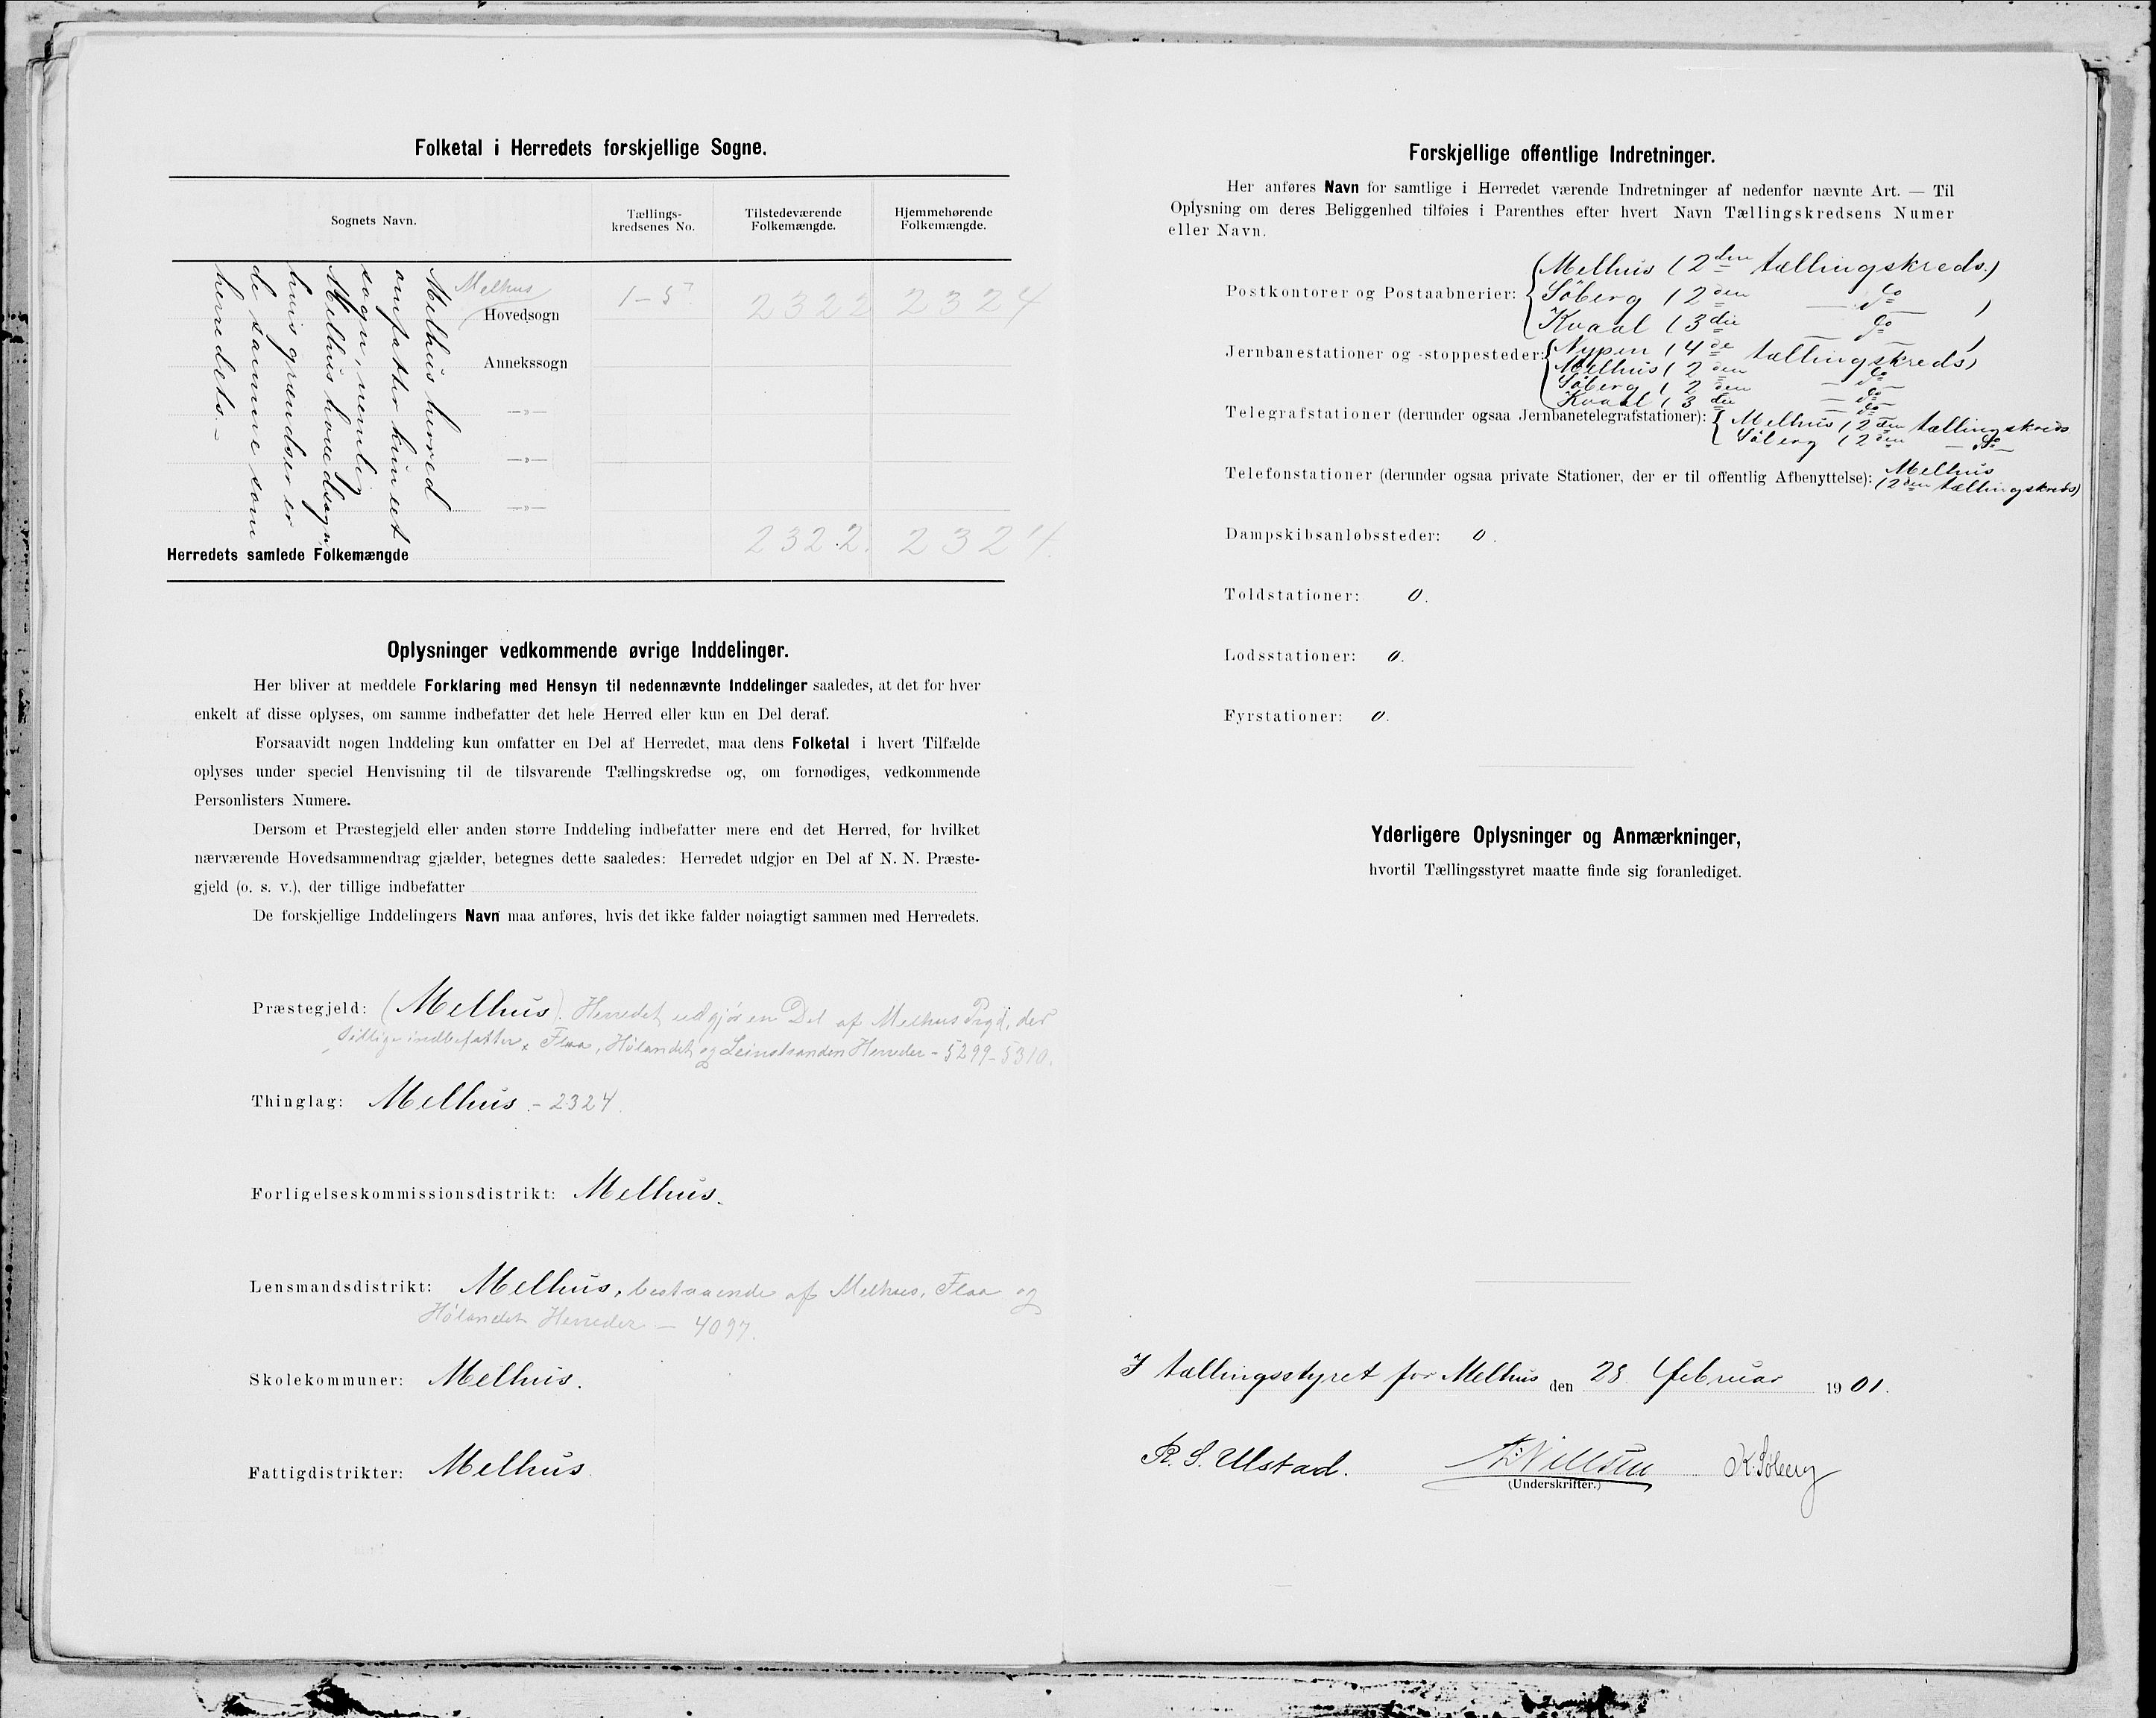 Folketal i Herredets forskjellige Sogne.
Sognets Navn.
Tællings-
kredsenes No.
Tilstedeværende
Folkemængde.
Hjemmehørende
Folkemængde.
Melhus herred
omfatter kun et
sogn, nemlig
Melhus hovedsogn,
hvis grændser er
de samme som
herredets. –
Melhus
Hovedsogn 1–5 2322 2324
Annekssogn
—»—
—»—
—»—
Herredets samlede Folkemængde 2322. 2324.
Oplysninger vedkommende øvrige Inddelinger.
Her bliver at meddele Forklaring med Hensyn til nedennævnte Inddelinger saaledes, at det for hver
enkelt af disse oplyses, om samme indbefatter det hele Herred eller kun en Del deraf.
Forsaavidt nogen Inddeling kun omfatter en Del af Herredet, maa dens Folketal i hvert Tilfælde
oplyses under speciel Henvisning til de tilsvarende Tællingskredse og, om fornødiges, vedkommende
Personlisters Numere.
Dersom et Præstegjeld eller anden større Inddeling indbefatter mere end det Herred, for hvilket
nærværende Hovedsammendrag gjælder, betegnes dette saaledes: Herredet udgjør en Del af N. N. Præste-
gjeld (o. s. v.), der tillige indbefatter
De forskjellige Inddelingers Navn maa anføres, hvis det ikke falder nøiagtigt sammen med Herredets.
Præstegjeld: (Melhus). Herredet udgjør en Del af Melhus Prgd, der
tillige indbefatter Flaa, Hølandet og Leinstranden Herreder – 5299 – 5310.
Thinglag: Melhus – 2324.
Forligelseskommissionsdistrikt: Melhus.
Lensmandsdistrikt: Melhus, bestaaende af Melhus, Flaa og
Hølandet Herreder – 4097.
Skolekommuner: Melhus.
Fattigdistrikter: Melhus.
Forskjellige offentlige Indretninger.
Her anføres Navn for samtlige i Herredet værende Indretninger af nedenfor nævnte Art. — Til
Oplysning om deres Beliggenhed tilføies i Parenthes efter hvert Navn Tællingskredsens Numer
eller Navn.
Postkontorer og Postaabnerier: Melhus (2den tællingskreds.)
Søberg (2den — do — )
Kvaal (3die — do — )
Jernbanestationer og -stoppesteder: Nypen (4de tællingskreds)
Melhus (2den — do —
Søberg (2den — do —
Kvaal (3die — do —
Telegrafstationer (derunder ogsaa Jernbanetelegrafstationer): Melhus (2den tællingskreds
Søberg (2den — do —
Telefonstationer (derunder ogsaa private Stationer, der er til offentlig Afbenyttelse): Melhus
(2den tællingskreds)
Dampskibsanløbssteder: 0.
Toldstationer: 0.
Lodsstationer: 0.
Fyrstationer: 0.
Yderligere Oplysninger og Anmærkninger,
hvortil Tællingsstyret maatte finde sig foranlediget.
I tællingsstyret for Melhus den 28. februar 1901.
R. S. Ulstad. K. Søberg
(Underskrifter.)